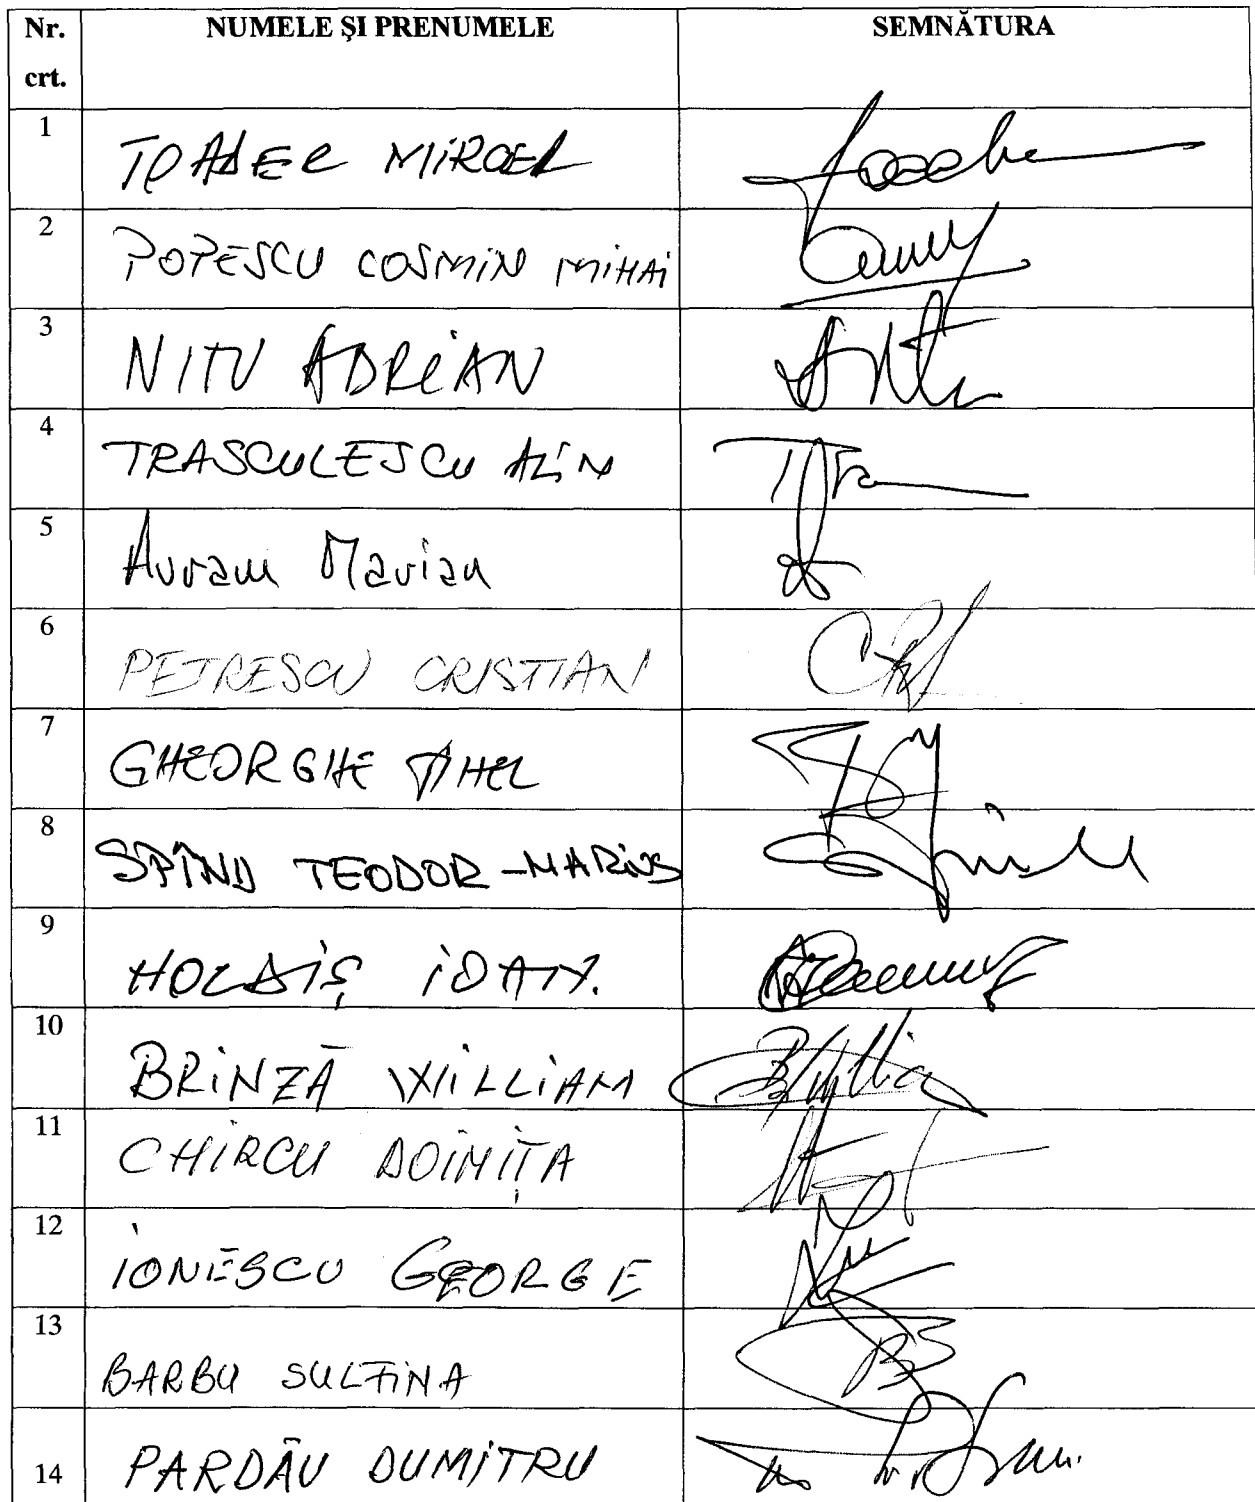 Nr. crt. NUMELE ŞI PRENUMELE SEMNĂTURA
1 TOADER MIRCEL
2 POPESCU COSMIN MIHAI
3 NITU ADRIAN
4 TRASCULESCU ALIN
5 Avram Marian
6 PETRESCU CRISTIAN
7 GHEORGHE
8 SPÎNU TEODOR-MARIUS
9
10 BRINZĂ WILLIAM
11 CHIRCU DOINIȚA
12 IONESCU GEORGE
13 BARBU SULFINA
14 PARDĂU DUMITRU